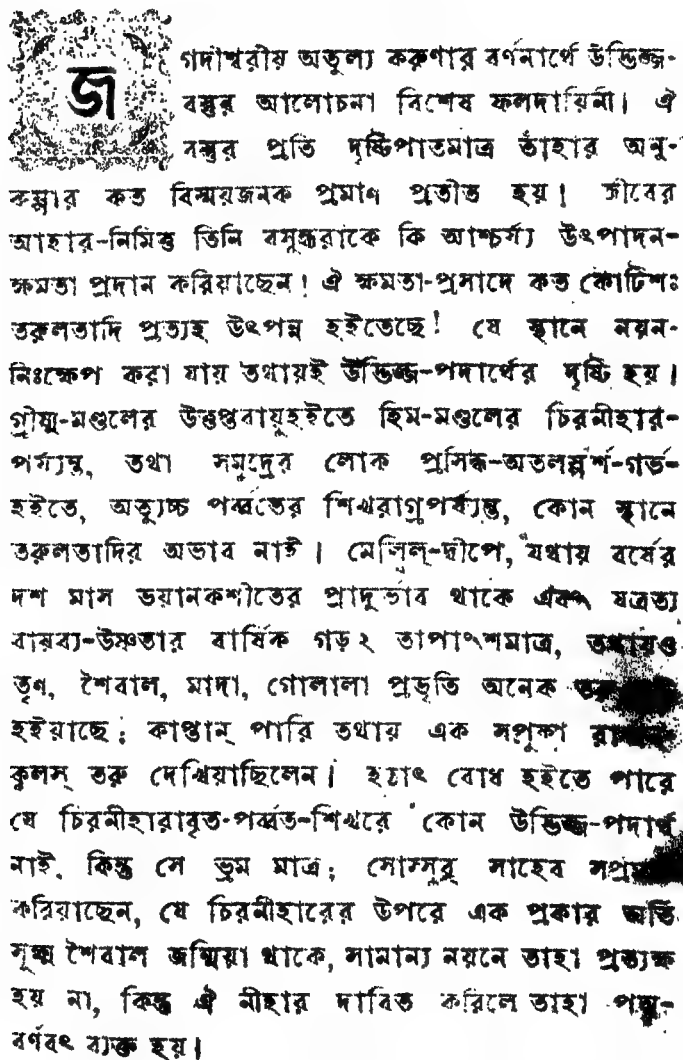 জগদীশ্বরীয় অতুল্য করুণার বর্ণনার্থে উদ্ভিজ্জ-
বস্তুর আলোচনা বিশেষ ফলদায়িনী। ঐ
বস্তুর প্রতি দৃষ্টিপাতমাত্র তাঁহার অনু-
কম্পার কত বিস্ময়জনক প্রমাণ প্রতীত হয়! জীবের
আহার-নিমিত্ত তিনি বসুন্ধরাকে কি আশ্চর্য্য উৎপাদন-
ক্ষমতা প্রদান করিয়াছেন! ঐ ক্ষমতা-প্রসাদে কত কোটিশঃ
তরুলতাদি প্রত্যহ উৎপন্ন হইতেছে! যে স্থানে নয়ন-
নিঃক্ষেপ করা যায় তথায়ই উদ্ভিজ্জ-পদার্থের দৃষ্টি হয়।
গ্রীষ্ম-মণ্ডলের উত্তপ্তবায়ুহইতে হিম-মণ্ডলের চিরনীহার-
পর্য্যন্ত, তথা সমুদ্রের লোক প্রসিদ্ধ-অতলস্পর্শ-গর্ভ-
হইতে, অত্যুচ্চ পর্ব্বতের শিখরাগ্রপর্য্যন্ত, কোন স্থানে
তরুলতাদির অভাব নাই। মেল্বিল্-দ্বীপে, যথায় বর্ষের
দশ মাস ভয়ানকশীতের প্রাদুর্ভাব থাকে এবং যত্রত্য
বায়ব্য-উষ্ণতার বার্ষিক গড় ২ তাপাংশমাত্র, তথায়ও
তৃণ, শৈবাল, মাদা, গোলালা প্রভৃতি অনেক
হইয়াছে; কাপ্তান্ পারি তথায় এক সপুষ্প
কুলস্ তরু দেখিয়াছিলেন। হঠাৎ বোধ হইতে পারে
যে চিরনীহারাবৃত-পর্ব্বত-শিখরে কোন উদ্ভিজ্জ-পদার্থ
নাই, কিন্তু সে ভ্রম মাত্র; সাহেব
করিয়াছেন, যে চিরনীহারের উপরে এক প্রকার অতি
সূক্ষ্ম শৈবাল জন্মিয়া থাকে, সামান্য নয়নে তাহা প্রত্যক্ষ
হয় না, কিন্তু ঐ নীহার দ্রাবিত করিলে তাহা পদ্ম-
বর্ণবৎ ব্যক্ত হয়।